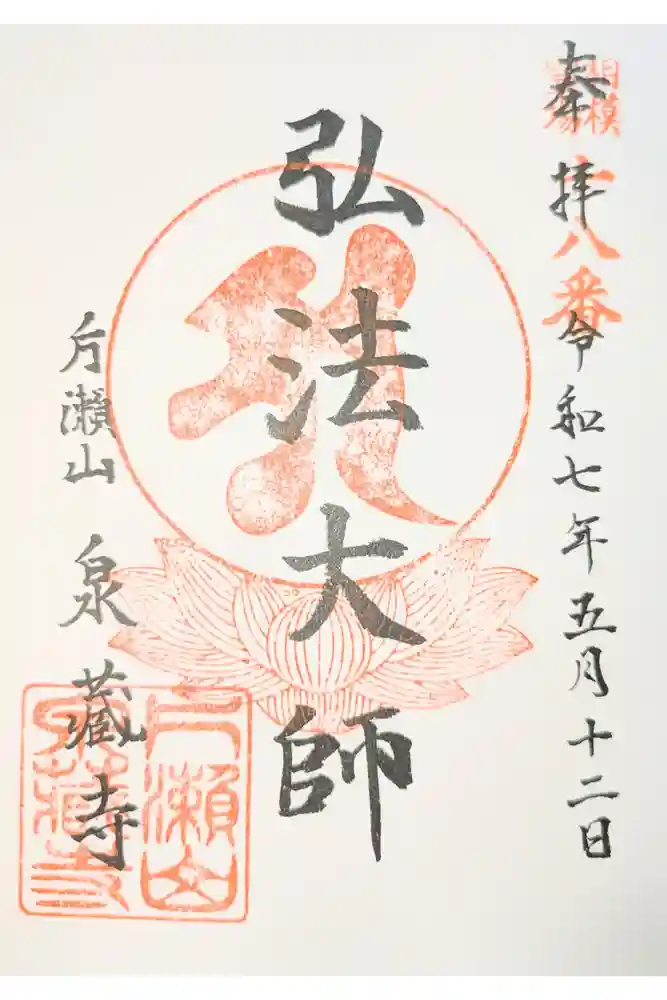 奉拝
令和七年五月十二日
相模
霊場
十八番
弘法大師
片瀬山
泉藏寺
片瀬山
泉藏寺